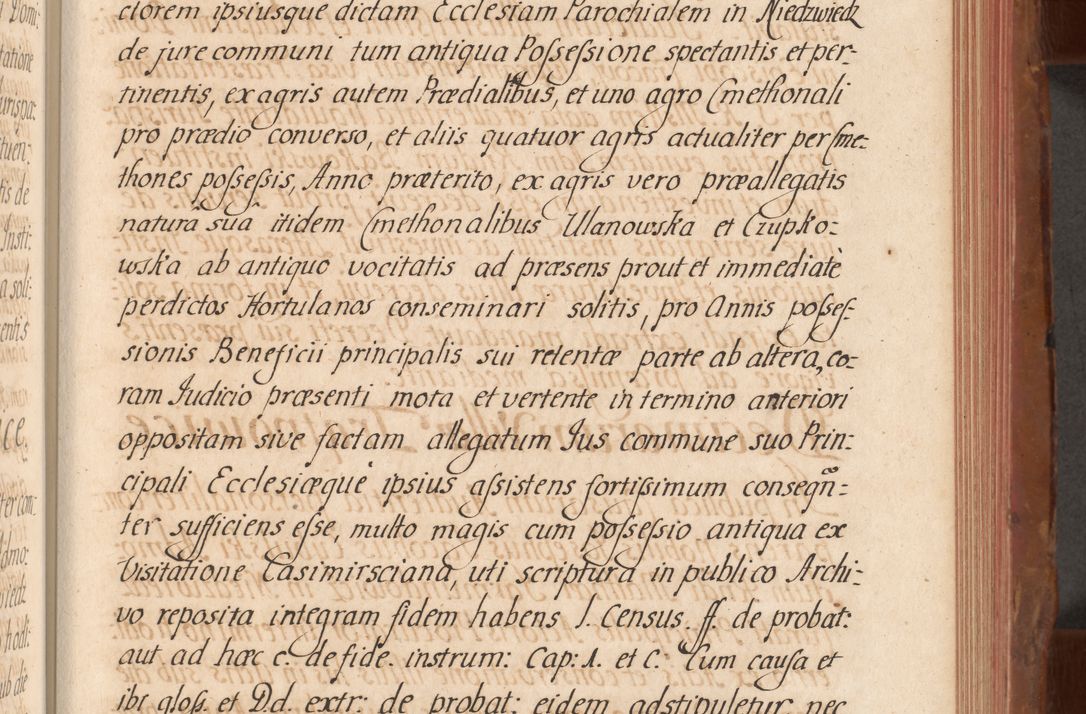 ctorem ipsiusque dictam Ecclesiam Parochialem in Niedzwiedz
de jure communi tum antiqua Poſseſsione spectantis et per-
tinentis, ex agris autem Prædialibus, et uno agro Cmethonali
pro prædio converso, et aliis quatuor agris actualiter per Cme-
thones poſseſsis, Anno præterito, ex agris vero præallegatis
natura sua itidem Cmethonalibus Ulanowska et Czupko-
wska ab antiquo vocitatis ad præsens prout et immediatè
per dictos Hortulanos conseminari solitis, pro Annis poſseſ-
sionis Beneficii principalis sui retentæ parte ab altera, co-
ram Judicio præsenti mota et vertente in termino anteriori
oppositam sive factam allegatum Jus commune suo Prin-
cipali Ecclesiæque ipsius aſsistens fortiſsimum conseqn̄-
ter sufficiens eſse, multo magis cum poſseſsio antiqua ex
Visitatione Casimirsciana, uti scriptura in publico Archi-
vo reposita integram fidem habens l. Census. ff. de probat:
aut ad hæc c. de fide. instrum: Cap: 1. et C. Cum cauſa et
ibi gloſs. et D.d. extr: de probat: eidem adstipuletur nec